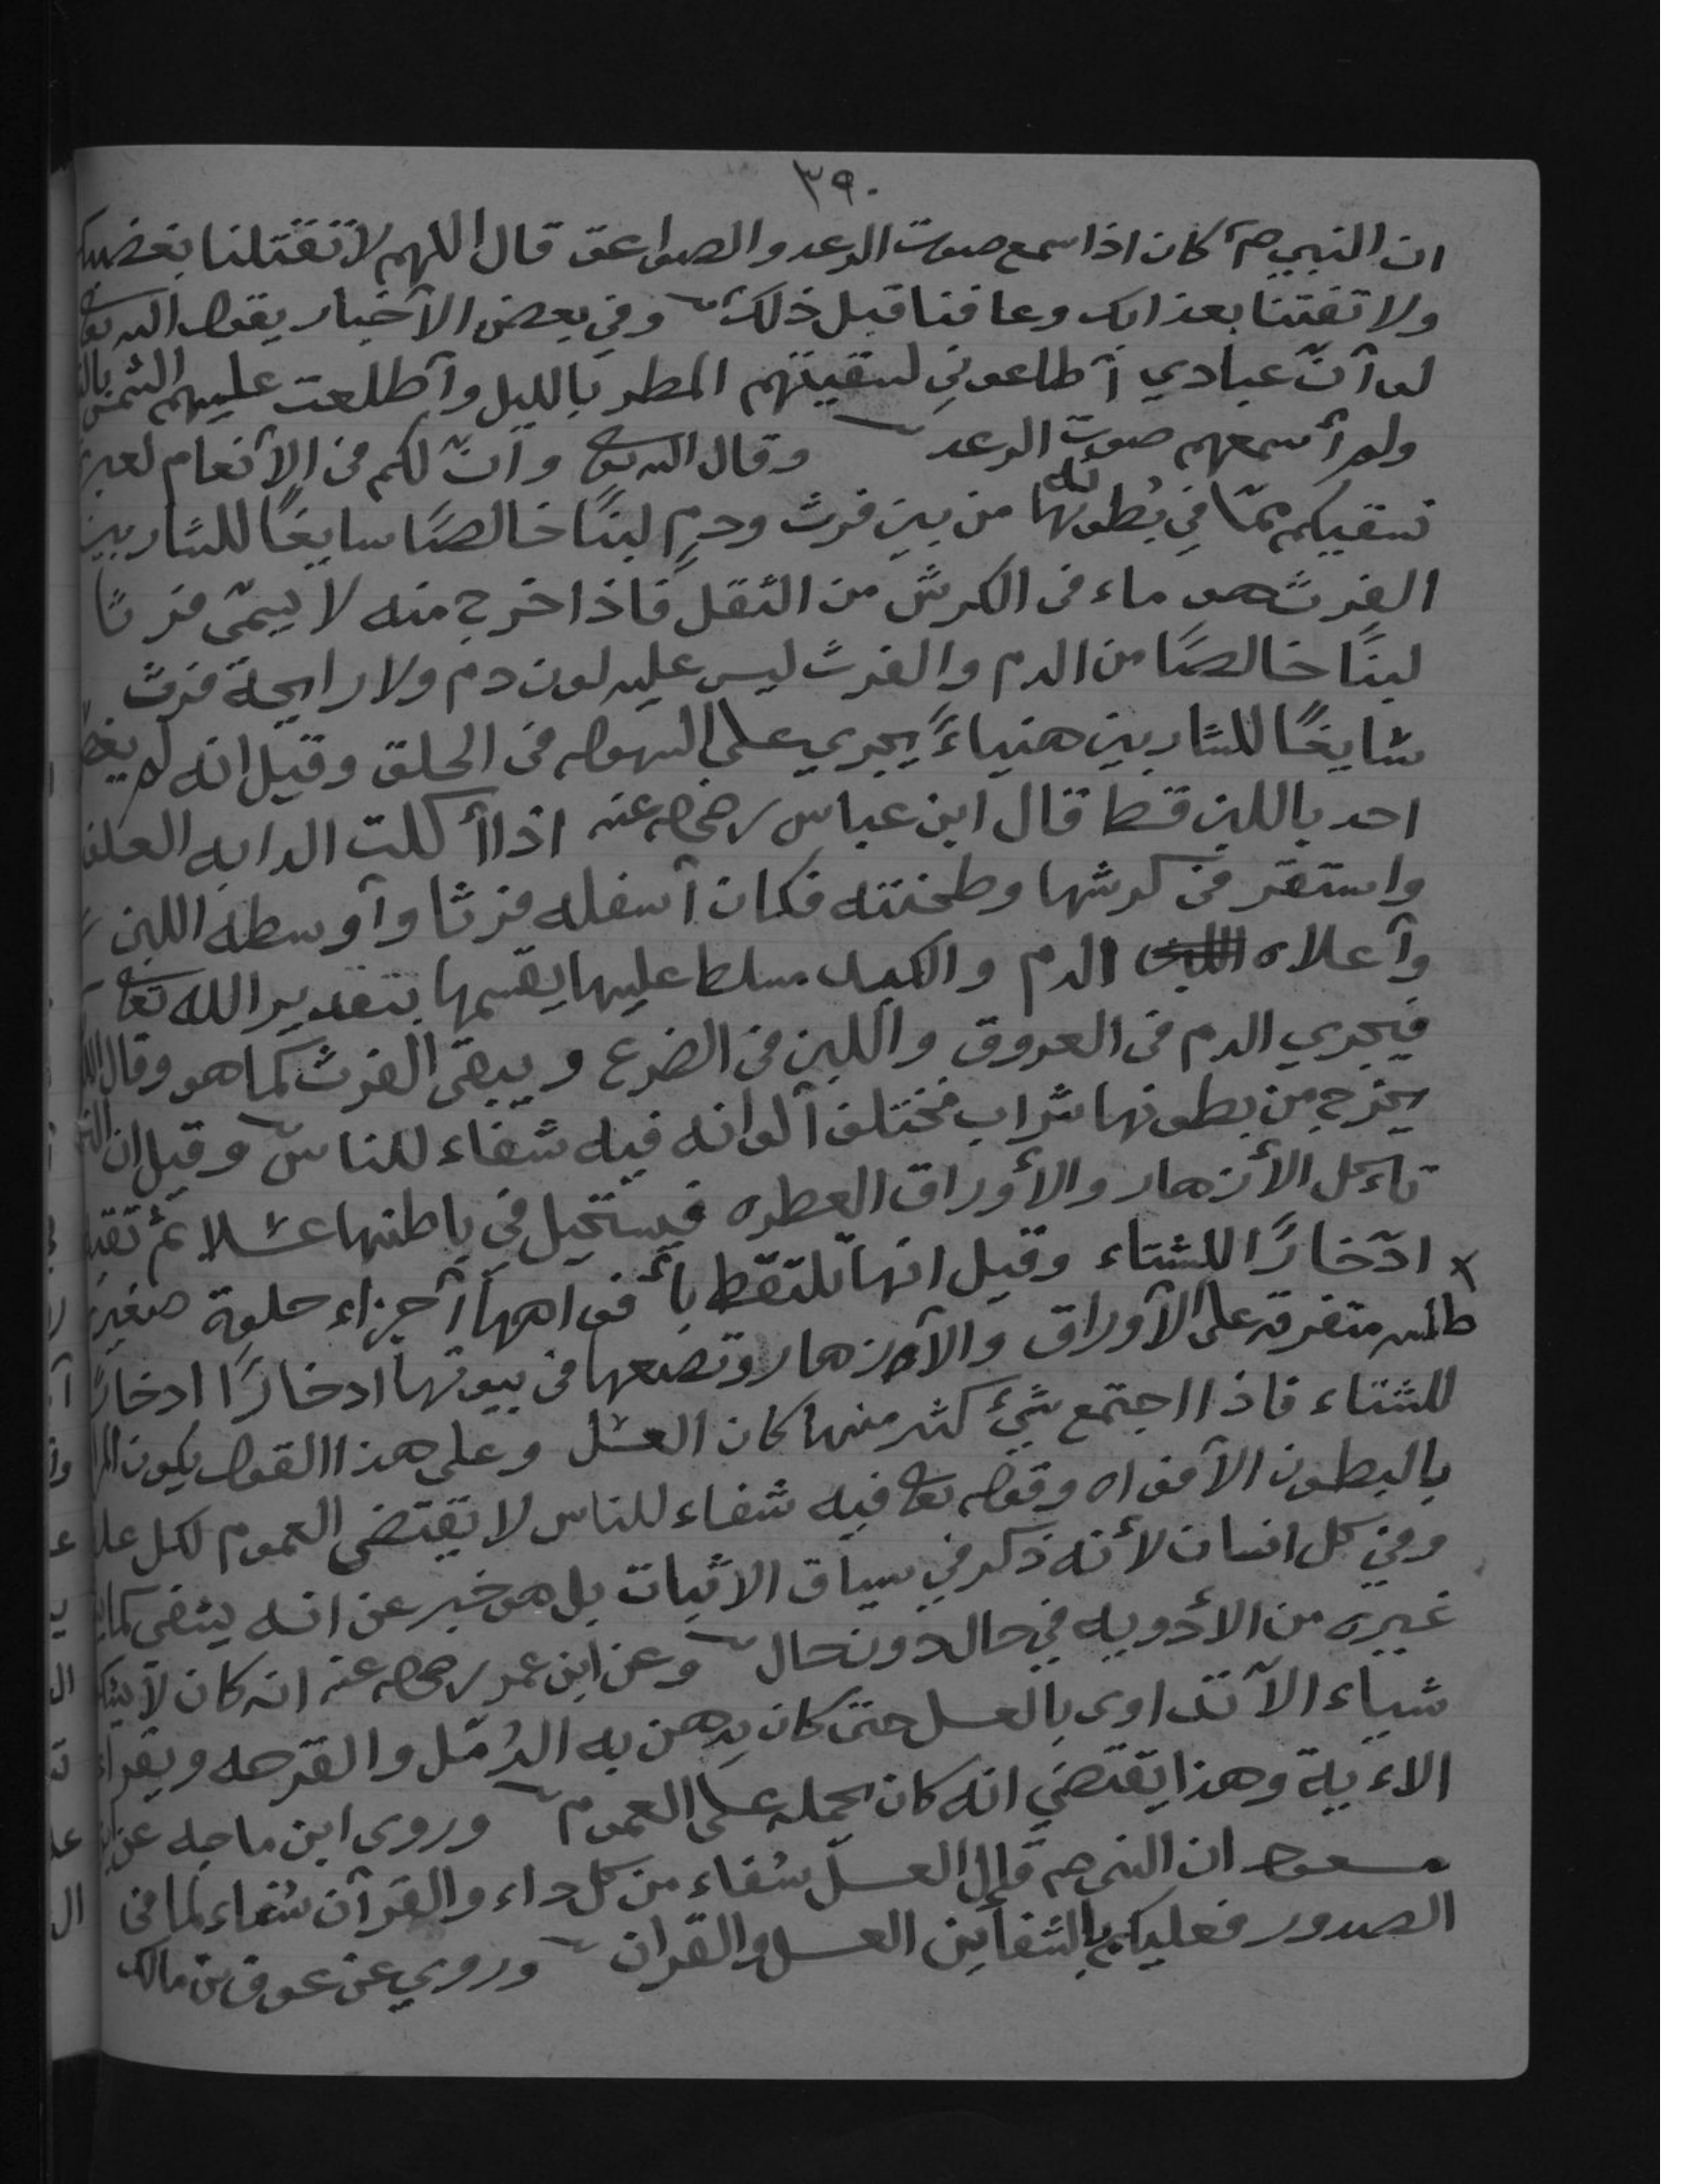 ٣٩٠
ان النبي صم كان اذا سمع صوت الرعد والصواعق قال اللهم لا تقتلنا بغضبك
ولا تفتنا بعذابك وعافنا قبل ذلك وفي بعض الأخبار يقول الله تعا
لو أنّ عبادي أطاعوني لسقيتهم المطر بالليل وأطلعت عليهم الشمس
ولم أسمعهم صوت الرعد وقال الله تع وانّ لكم في الأنعام لعبرة
نسقيكم ممّا في بُطونها من بين فرث ودمٍ لبنًا خالصًا سايغًا للشاربين
الفرث هو ماء في الكرش من الثقل فاذا خرج منه لا يسمّى فرثًا
لبنًا خالصًا من الدم والفرث ليس عليه لون دم ولا رايحة فرث
سايغًا للشاربين هنياءً يجري على السهوله في الحلق وقيل انه لم يغص
احد باللبن قط قال ابن عباس رضي الله عنه اذا أكلت الدابه العلف
واستقر في كرشها وطحنته فكان أسفله فرثا وأوسطه اللبن
وأعلاه الدم والكبد مسلط عليها يقسمها بتقدير الله تعا
فيجري الدم في العروق واللبن في الضرع ويبقى الفرث كما هو وقال
يخرج من بطونها شراب مختلف ألوانه فيه شفاء للناس وقيل ان
تاءكل الأزهار والأوراق العطره فيستحيل في باطنها عسلا ثم
ادّخارًا للشتاء وقيل انها تلتقط بأفواهها أجزاء حلوة صغيرة
متفرقه على الأوراق والأزهار وتضعها في بيوتها ادخارًا ادخارًا
للشتاء فاذا اجتمع شيء كثر منها كان العسل وعلى هذا القول يكون
بالبطون الأفواه وقوله تعا فيه شفاء للناس لا يقتضي العموم لكل
وفي كل انسان لأنه ذكر في سياق الاثبات بل هو خبر عن انه يشفي كما
غيره من الأدويه في حال دون حال وعن ابن عمر رضي الله عنه انه كان لا
شياء الا تداوى بالعسل حتى كان يدهن به الدُمّل والقرحه ويقراء
الاءية وهذا يقتضي انه كان يحمله على العموم وروى ابن ماجه عن
مسعود ان النبي صم قال العسل شفاء من كل داء والقرآن شفاء لما في
الصدور فعليكم بالشفاين العسل والقران وروي عن عوف بن مالك